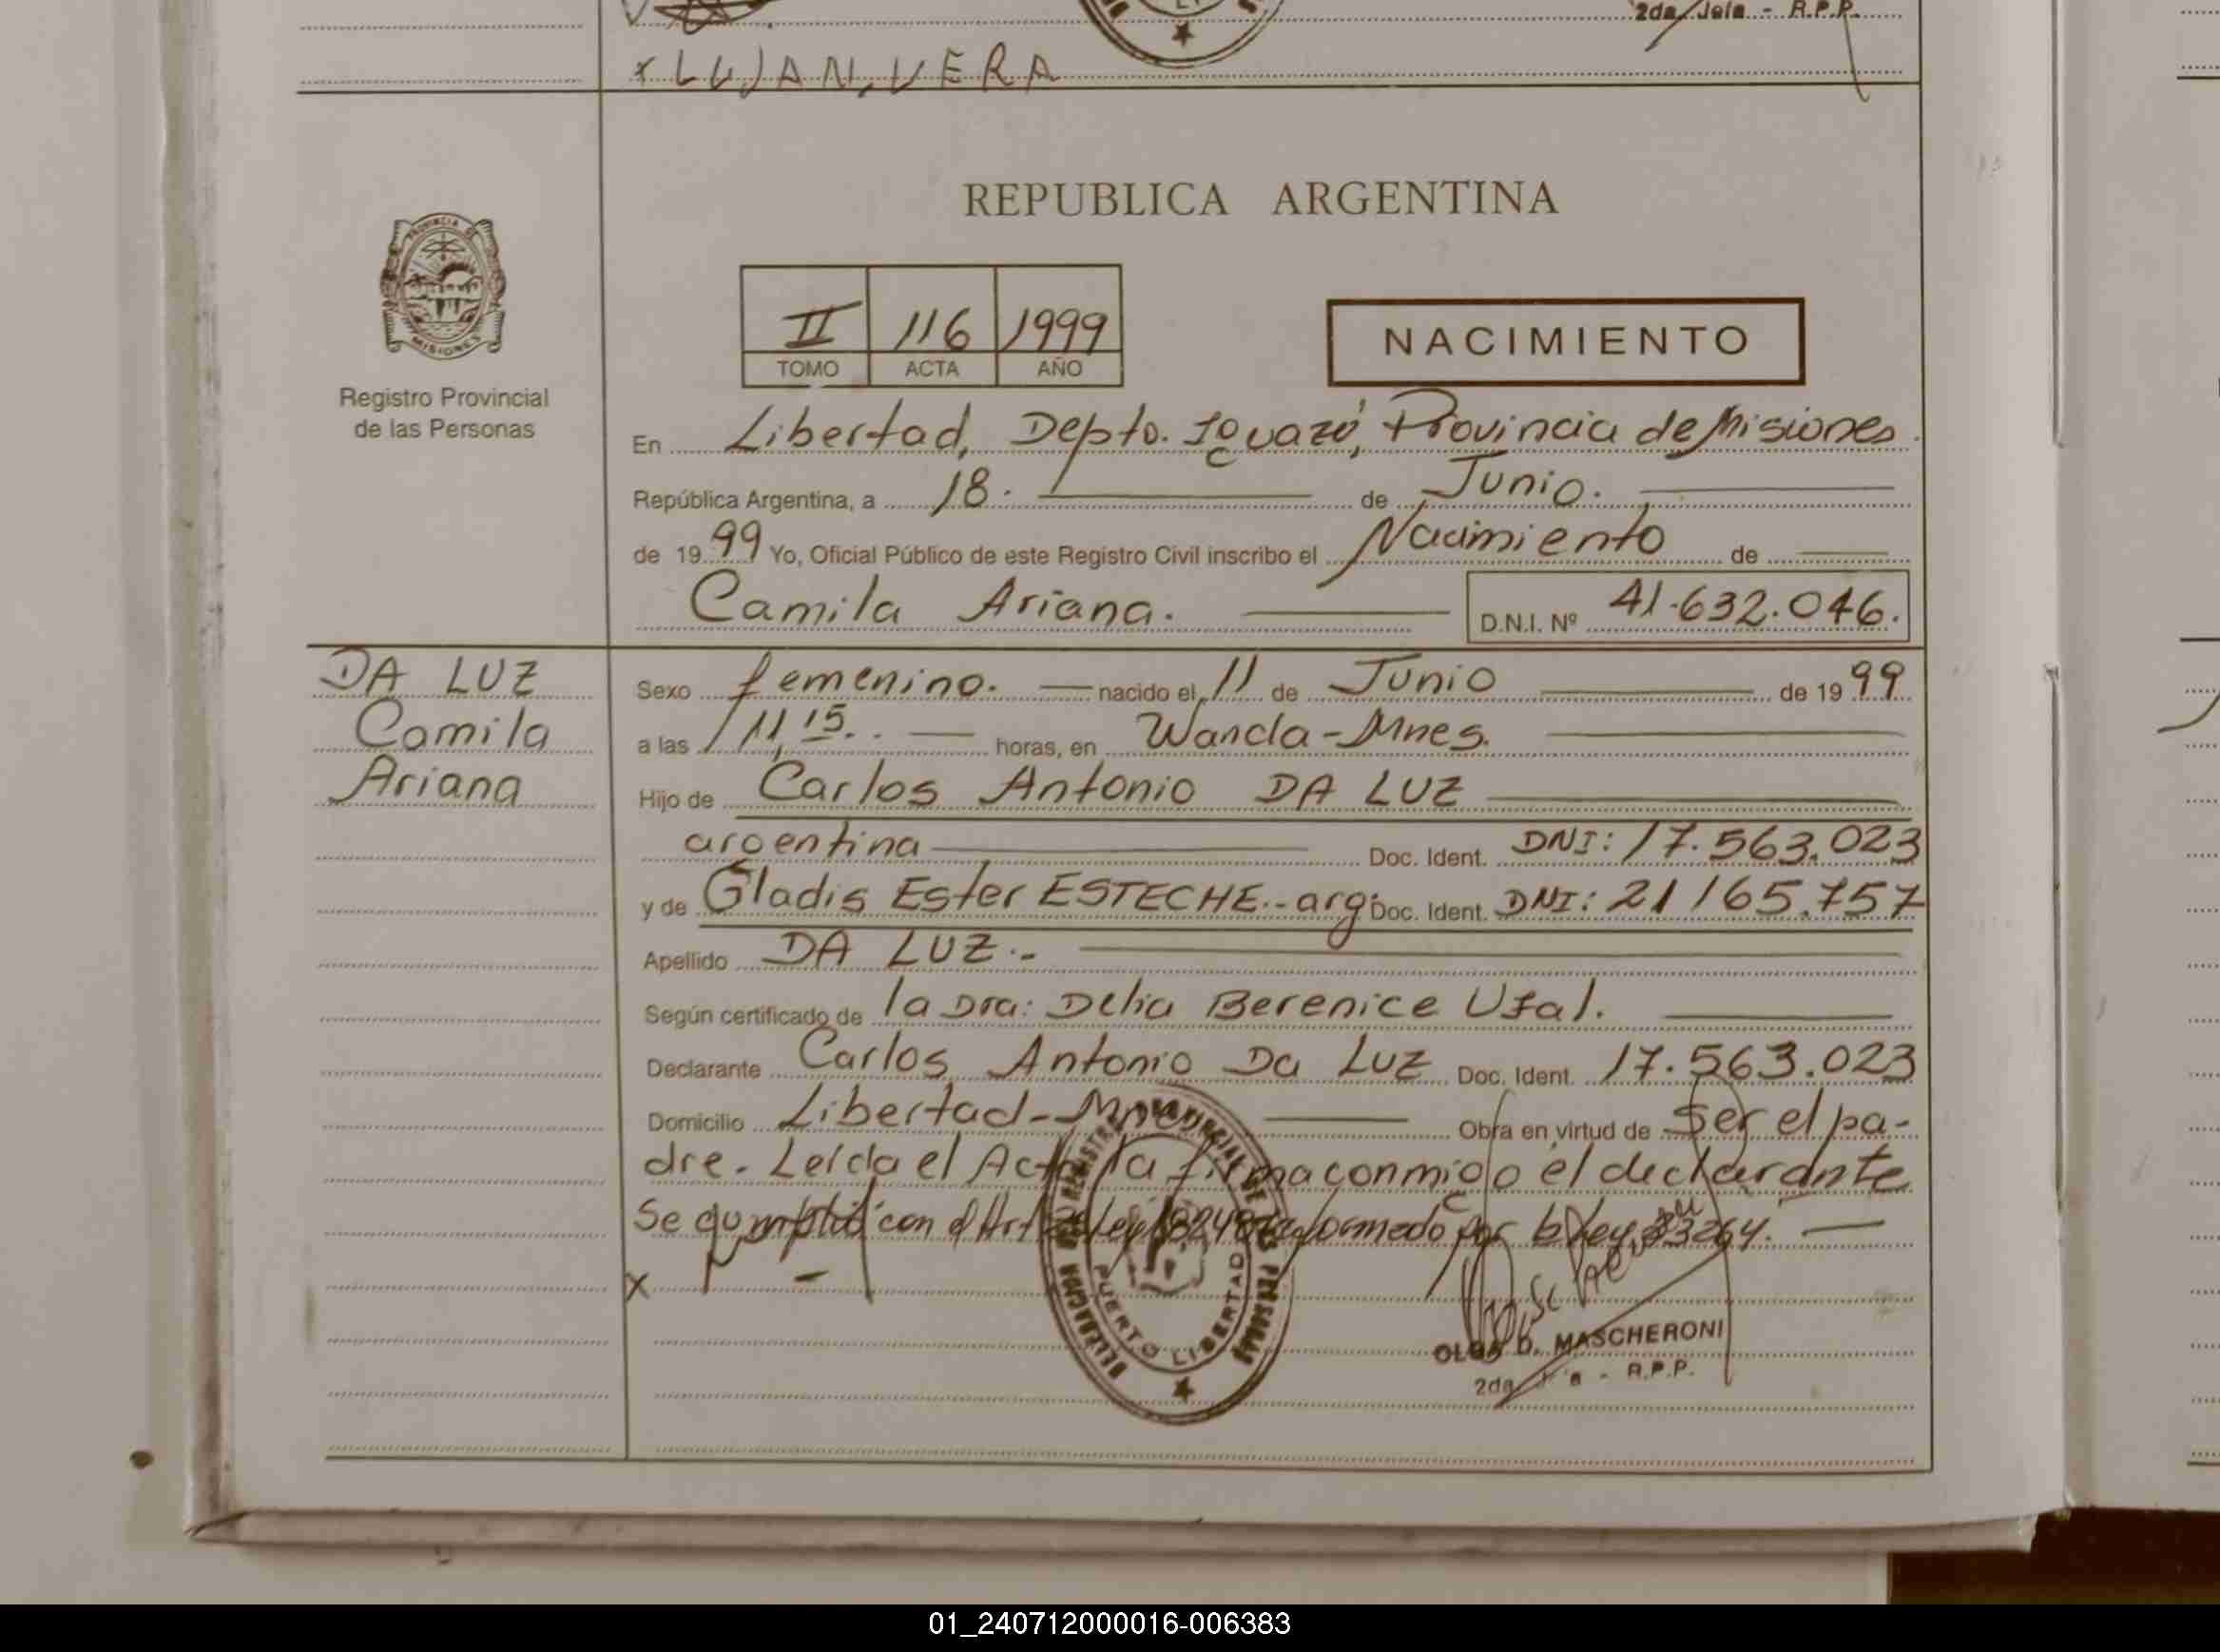 2da Jefa - R.P.P.
x LUJAN, VERA
REPUBLICA ARGENTINA
PROVINCIA DE
MISIONES
Registro Provincial
de las Personas
II 116 1999
TOMO ACTA AÑO
NACIMIENTO
En Libertad, Depto. Iguazú, Provincia de Misiones
República Argentina, a 18. de Junio.
de 1999 Yo, Oficial Público de este Registro Civil inscribo el Nacimiento de
Camila Ariana. D.N.I. Nº 41.632.046.
DA LUZ
Camila
Ariana
Sexo femenino. nacido el 11 de Junio de 1999
a las 11,15. horas, en Wanda-Mnes.
Hijo de Carlos Antonio DA LUZ
argentina Doc. Ident. DNI: 17.563.023
y de Gladis Ester ESTECHE.-arg: Doc. Ident. DNI: 21165.757
Apellido DA LUZ.-
Según certificado de la Dra: Delia Berenice Ufal.
Declarante Carlos Antonio Da Luz Doc. Ident. 17.563.023
Domicilio Libertad-Mnes Obra en virtud de Ser el pa-
dre. Leída el Acta la firma conmigo el declarante
Se cumplió con el Art Ley 18248 reformado por la Ley 23264.
x
REGISTRO PROVINCIAL DE LAS PERSONAS
DELEGACION
PUERTO LIBERTAD
OLGA D. MASCHERONI
2da Jefa - R.P.P.
01_240712000016-006383